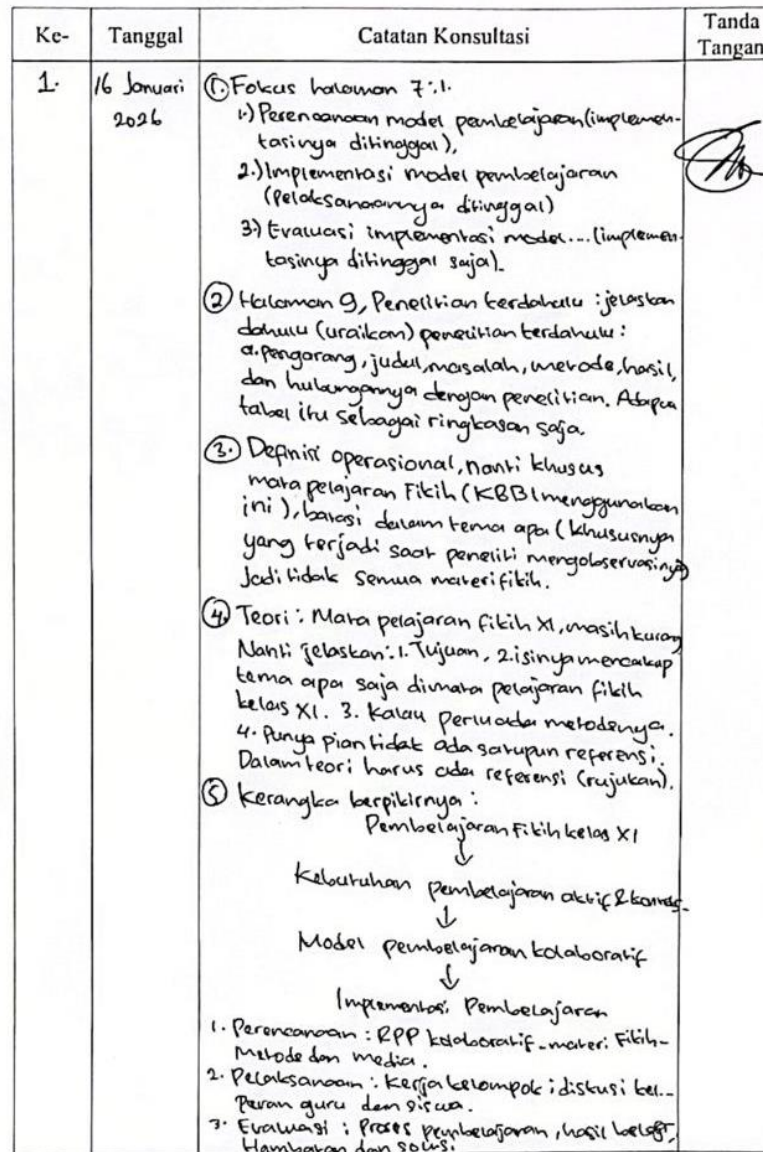 Ke-
Tanggal
Catatan Konsultasi
Tanda
Tangan
1.
16 Januari
2026
①. Fokus halaman 7 : 1.
1.) Perencanaan model pembelajaran (implemen-
tasinya ditinggal),
2.) Implementasi model pembelajaran
(Pelaksanaannya ditinggal)
3.) Evaluasi implementasi model... (implemen-
tasinya ditinggal saja).
② Halaman 9, Penelitian terdahulu : jelaskan
dahulu (uraikan) penelitian terdahulu :
a. pengarang, judul, masalah, metode, hasil,
dan hubungannya dengan penelitian. Adapun
tabel itu sebagai ringkasan saja.
③. Definisi operasional, nanti khusus
mata pelajaran Fikih (KBBI menggunakan
ini), batasi dalam tema apa (khususnya
yang terjadi saat peneliti mengobservasinya)
Jadi tidak semua materi fikih.
④. Teori : Mata pelajaran fikih XI, masih kurang
Nanti jelaskan : 1. Tujuan, 2. isinya mencakup
tema apa saja dimata pelajaran fikih
kelas XI. 3. Kalau perlu ada metodenya.
4. Punya pian tidak ada satupun referensi.
Dalam teori harus ada referensi (rujukan).
⑤ Kerangka berpikirnya :
Pembelajaran Fikih kelas XI
↓
Kebutuhan pembelajaran aktif &
↓
Model pembelajaran kolaboratif
↓
Implementasi Pembelajaran
1. Perencanaan : RPP kolaboratif - materi Fikih -
Metode dan media.
2. Pelaksanaan : Kerja kelompok ; diskusi kel...
Peran guru dan siswa.
3. Evaluasi : Proses pembelajaran, hasil belajar,
Hambatan dan solusi.